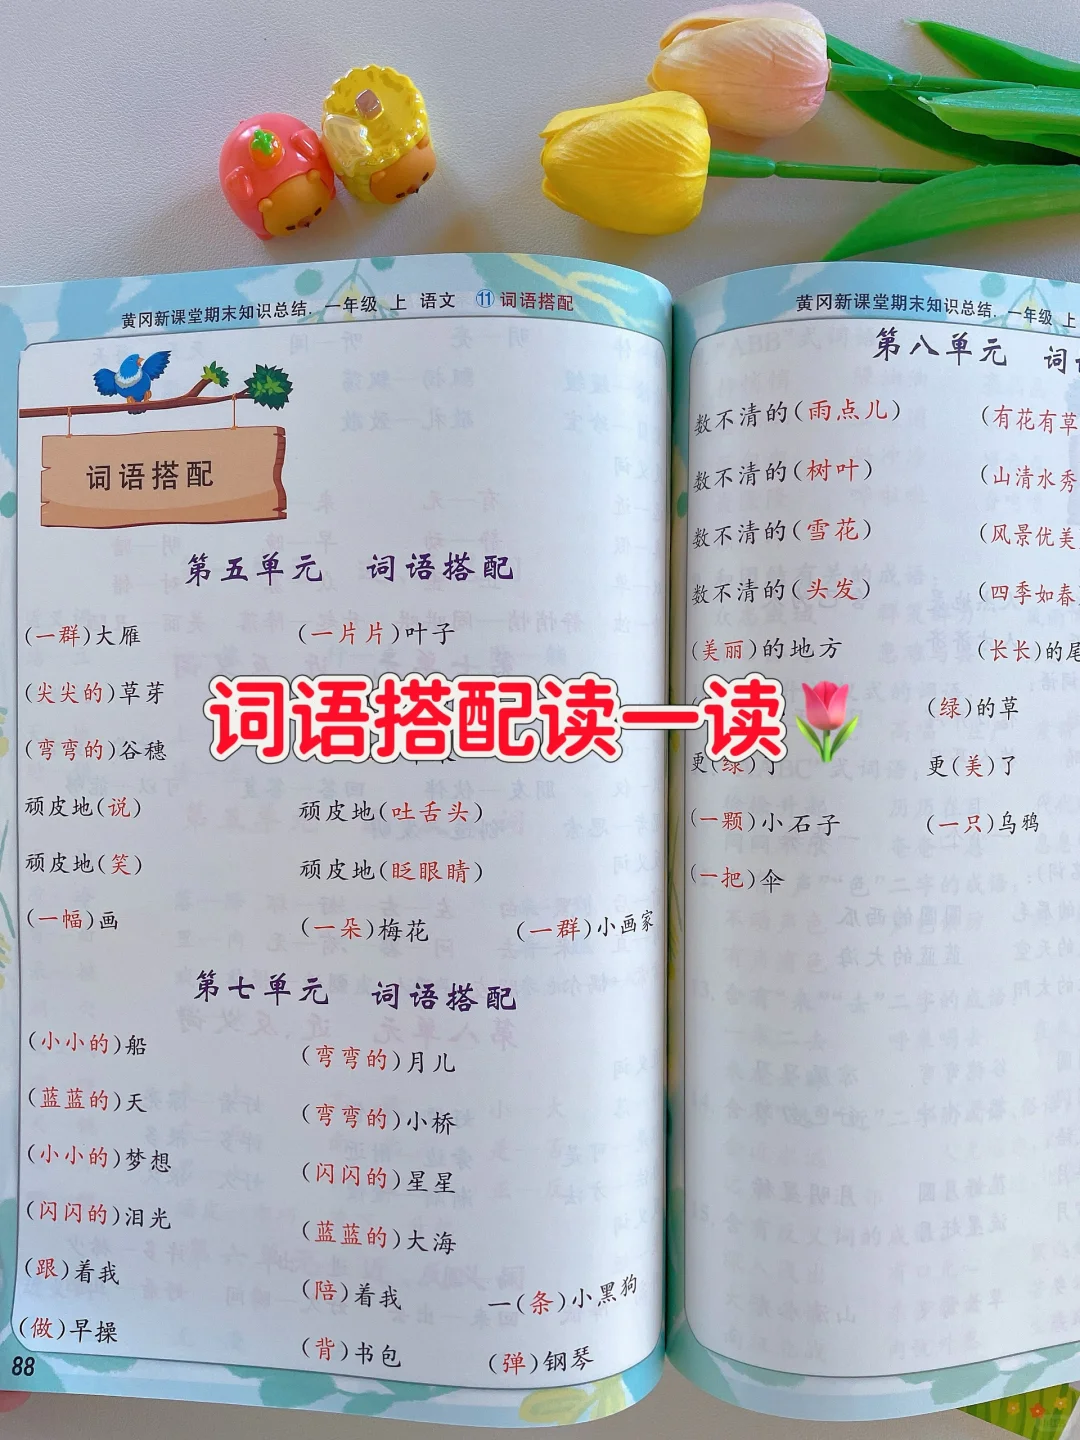 黄冈新课堂期末知识总结. 一年级 上 语文 ⑪词语搭配
词语搭配
第五单元 词语搭配
(一群)大雁 (一片片)叶子
(尖尖的)草芽
(弯弯的)谷穗
词语搭配读一读
顽皮地(说) 顽皮地(吐舌头)
顽皮地(笑) 顽皮地(眨眼睛)
(一幅)画 (一朵)梅花 (一群)小画家
第七单元 词语搭配
(小小的)船 (弯弯的)月儿
(蓝蓝的)天 (弯弯的)小桥
(小小的)梦想 (闪闪的)星星
(闪闪的)泪光 (蓝蓝的)大海
(跟)着我 (陪)着我 一(条)小黑狗
(做)早操 (背)书包 (弹)钢琴
88
黄冈新课堂期末知识总结. 一年级 上
第八单元 词
数不清的(雨点儿) (有花有草
数不清的(树叶) (山清水秀
数不清的(雪花) (风景优美
数不清的(头发) (四季如春
(美丽)的地方 (长长)的尾
(绿)的草
更(绿)了 更(美)了
(一颗)小石子 (一只)乌鸦
(一把)伞